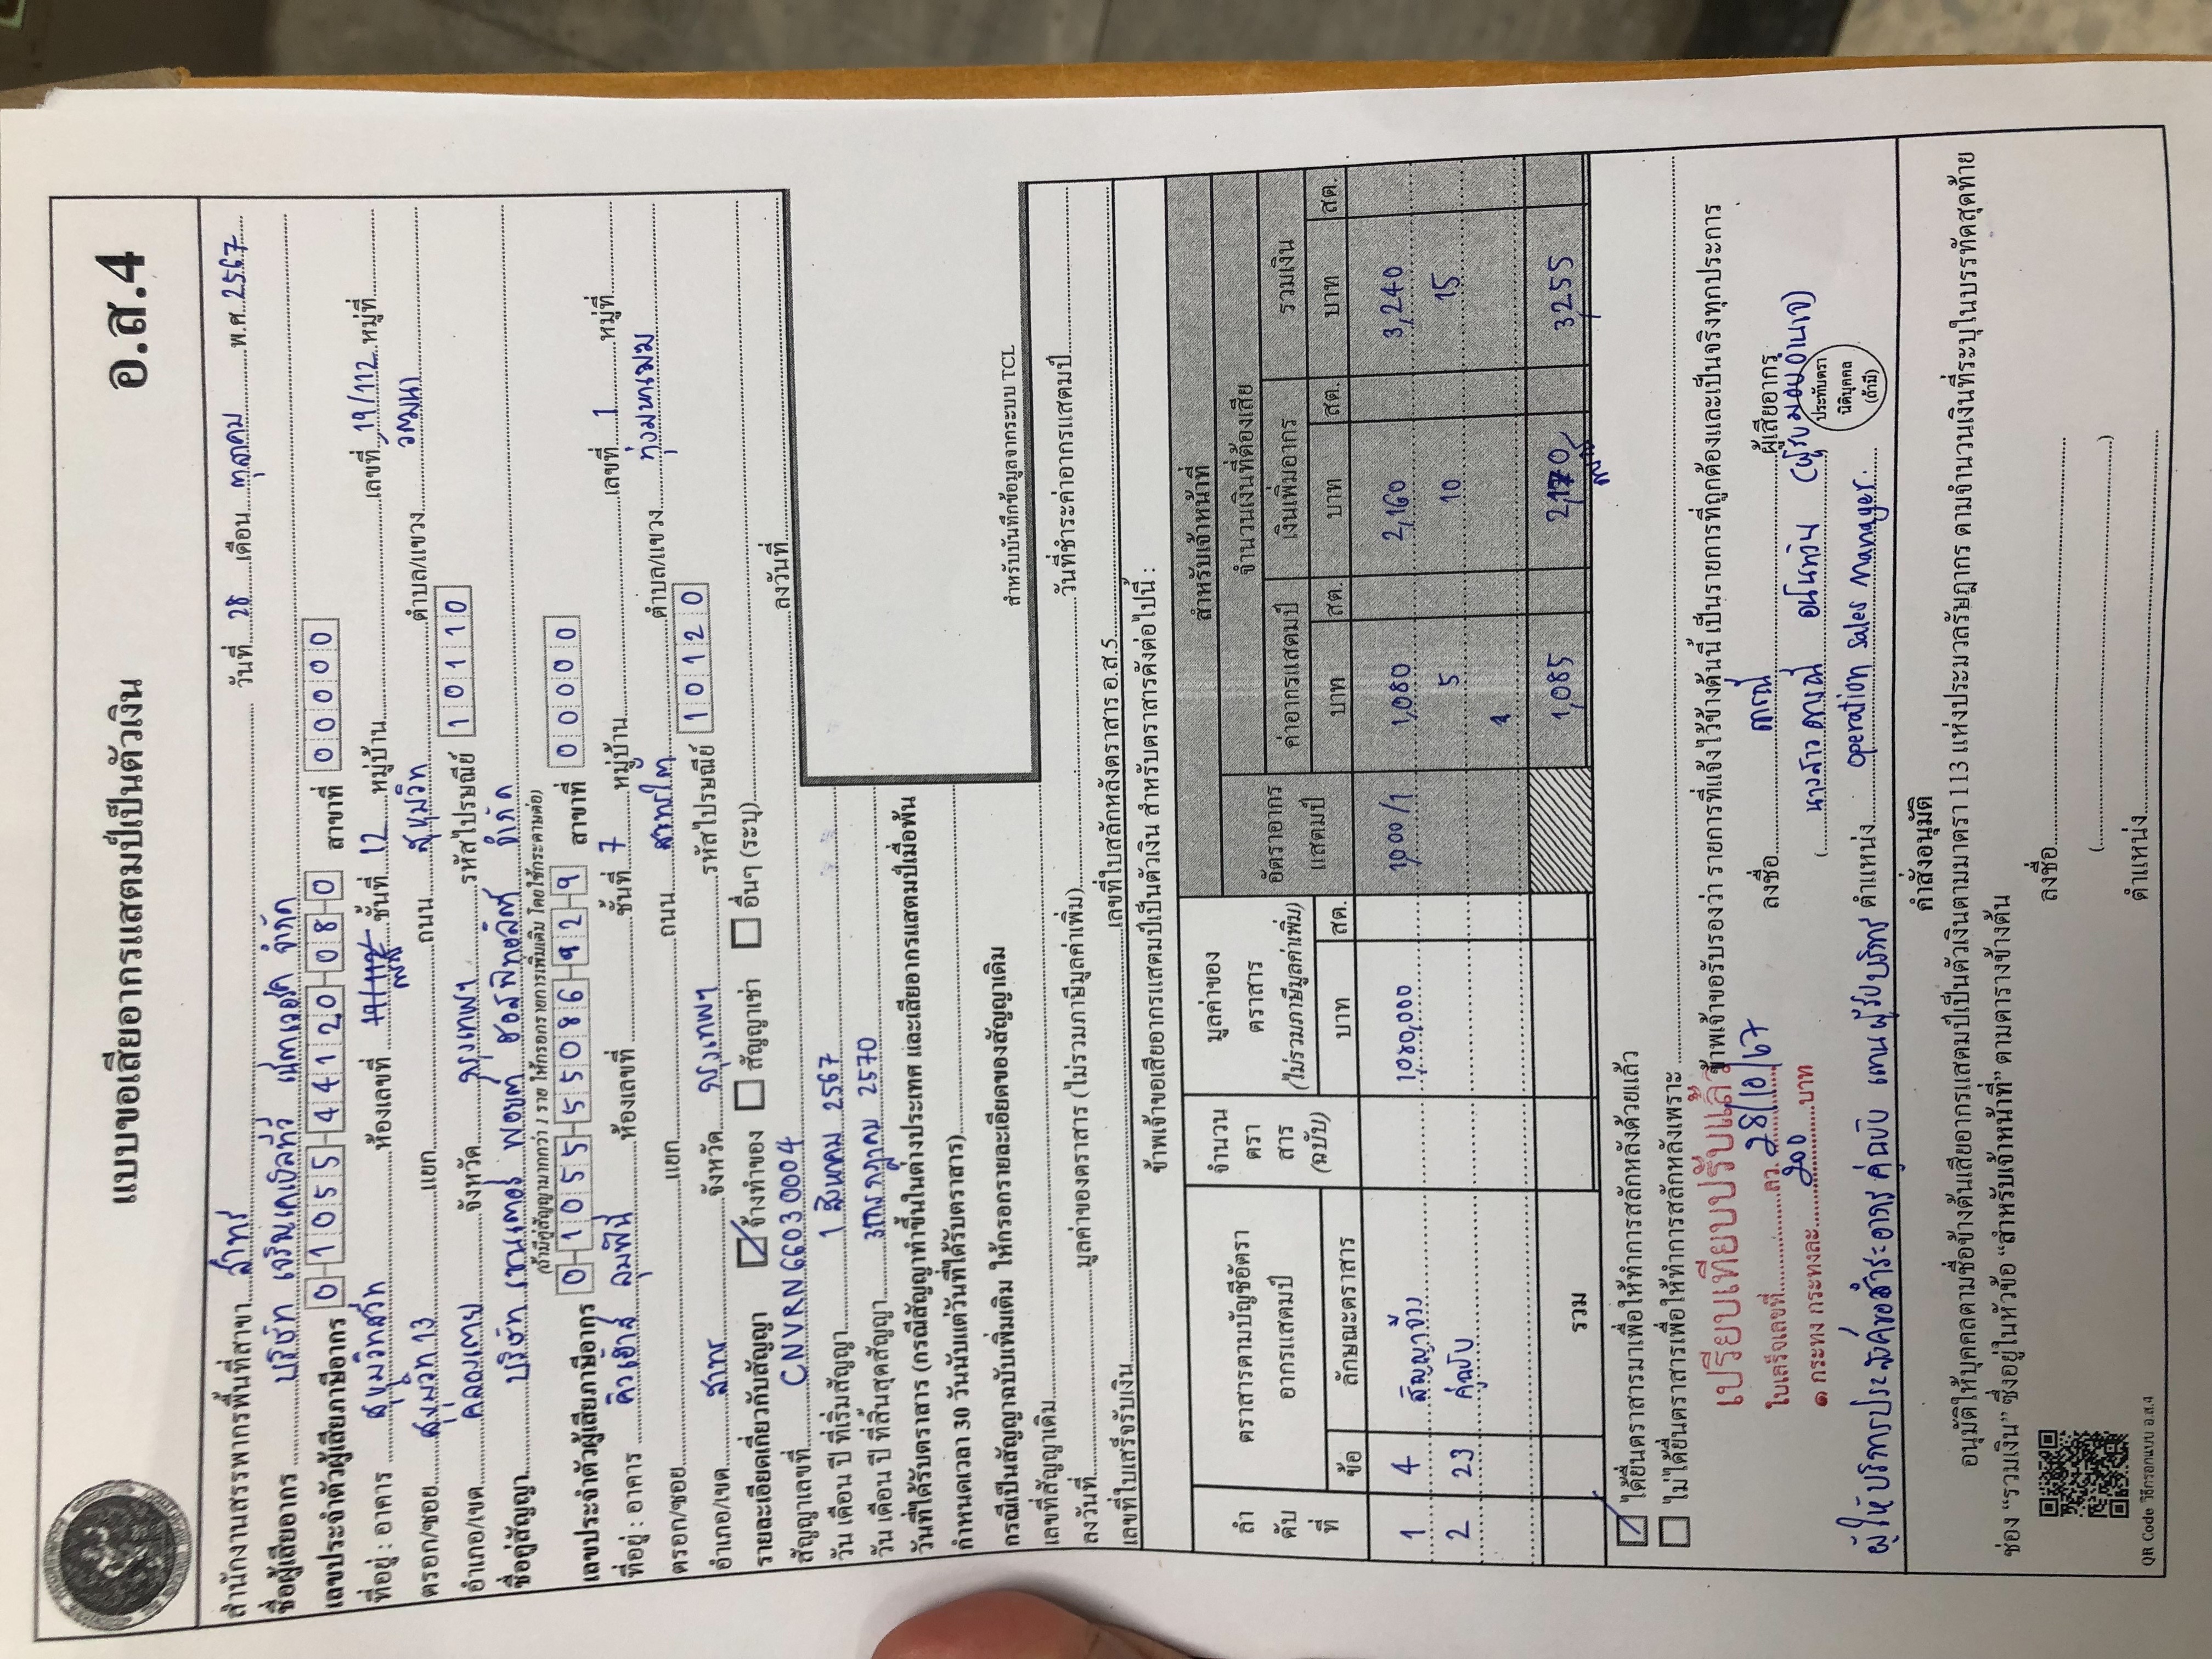 แบบขอเสียอากรแสตมป์เป็นตัวเงิน อ.ส.4
สำนักงานสรรพากรพื้นที่สาขา สาทร วันที่ 28 เดือน ตุลาคม พ.ศ. 2567
ชื่อผู้เสียอากร บริษัท เจริญเคเบิลทีวี เน็ทเวอร์ค จำกัด
เลขประจำตัวผู้เสียภาษีอากร 0-1055-44120-08-0 สาขาที่ 00000
ที่อยู่ : อาคาร สุขุมวิทสวีท ห้องเลขที่ ชั้นที่ 12 หมู่บ้าน เลขที่ 19/112 หมู่ที่
ตรอก/ซอย สุขุมวิท 13 แยก ถนน สุขุมวิท ตำบล/แขวง วัฒนา
อำเภอ/เขต คลองเตย จังหวัด กรุงเทพฯ รหัสไปรษณีย์ 10110
ชื่อคู่สัญญา บริษัท เซนเตอร์ พอยต์ ฮอสพิทอลิตี้ จำกัด
(ถ้ามีคู่สัญญามากกว่า 1 ราย ให้กรอกรายการเพิ่มเติม โดยใช้กระดาษต่อ)
เลขประจำตัวผู้เสียภาษีอากร 0-1055-55086-92-9 สาขาที่ 00000
ที่อยู่ : อาคาร คิวเฮ้าส์ ลุมพินี ห้องเลขที่ ชั้นที่ 7 หมู่บ้าน เลขที่ 1 หมู่ที่
ตรอก/ซอย แยก ถนน สาทรใต้ ตำบล/แขวง ทุ่งมหาเมฆ
อำเภอ/เขต สาทร จังหวัด กรุงเทพฯ รหัสไปรษณีย์ 10120
รายละเอียดเกี่ยวกับสัญญา จ้างทำของ สัญญาเช่า อื่นๆ (ระบุ)
สัญญาเลขที่ CNVRN66030004 ลงวันที่
วัน เดือน ปี ที่เริ่มสัญญา 1 สิงหาคม 2567
วัน เดือน ปี ที่สิ้นสุดสัญญา 31 กรกฎาคม 2570
วันที่ได้รับตราสาร (กรณีสัญญาทำขึ้นในต่างประเทศ และเสียอากรแสตมป์เมื่อพ้น
กำหนดเวลา 30 วันนับแต่วันที่ได้รับตราสาร)
สำหรับบันทึกข้อมูลจากระบบ TCL
กรณีเป็นสัญญาฉบับเพิ่มเติม ให้กรอกรายละเอียดของสัญญาเดิม
เลขที่สัญญาเดิม
ลงวันที่ มูลค่าของตราสาร (ไม่รวมภาษีมูลค่าเพิ่ม) วันที่ชำระค่าอากรแสตมป์
เลขที่ใบเสร็จรับเงิน เลขที่ใบสลักหลังตราสาร อ.ส.5
ข้าพเจ้าขอเสียอากรแสตมป์เป็นตัวเงิน สำหรับตราสารดังต่อไปนี้ :
ลำดับที่ ตราสารตามบัญชีอัตราอากรแสตมป์ จำนวนตราสาร (ฉบับ) มูลค่าของตราสาร (ไม่รวมภาษีมูลค่าเพิ่ม) สำหรับเจ้าหน้าที่
อัตราอากรแสตมป์ จำนวนเงินที่ต้องเสีย
ค่าอากรแสตมป์ เงินเพิ่มอากร รวมเงิน
ข้อ ลักษณะตราสาร บาท สต. บาท สต. บาท สต. บาท สต.
1 4 สัญญาจ้าง 1,080,000 1,000/1 1,080 2,160 3,240
2 23 คู่ฉบับ 5 10 15
รวม 1,085 2,170 3,255
ได้ยื่นตราสารมาเพื่อให้ทำการสลักหลังด้วยแล้ว
ไม่ได้ยื่นตราสารเพื่อให้ทำการสลักหลังเพราะ
เปรียบเทียบปรับแล้ว
ใบเสร็จเลขที่ ลว. 28/10/67
๑ กระทง กระทงละ 200 บาท
ข้าพเจ้าขอรับรองว่า รายการที่แจ้งไว้ข้างต้นนี้ เป็นรายการที่ถูกต้องและเป็นจริงทุกประการ
ลงชื่อ ผู้เสียอากร
(นางสาว (ผู้รับมอบอำนาจ)
ตำแหน่ง Operation Sales Manager.
ประทับตรา
นิติบุคคล
(ถ้ามี)
ผู้ให้บริการประสงค์ขอชำระอากร คู่ฉบับ แทนผู้รับบริการ
คำสั่งอนุมัติ
อนุมัติให้บุคคลตามชื่อข้างต้นเสียอากรแสตมป์เป็นตัวเงินตามมาตรา 113 แห่งประมวลรัษฎากร ตามจำนวนเงินที่ระบุในบรรทัดสุดท้าย
ช่อง “รวมเงิน” ซึ่งอยู่ในหัวข้อ “สำหรับเจ้าหน้าที่” ตามตารางข้างต้น
ลงชื่อ
( )
ตำแหน่ง
QR Code วิธีกรอกแบบ อ.ส.4